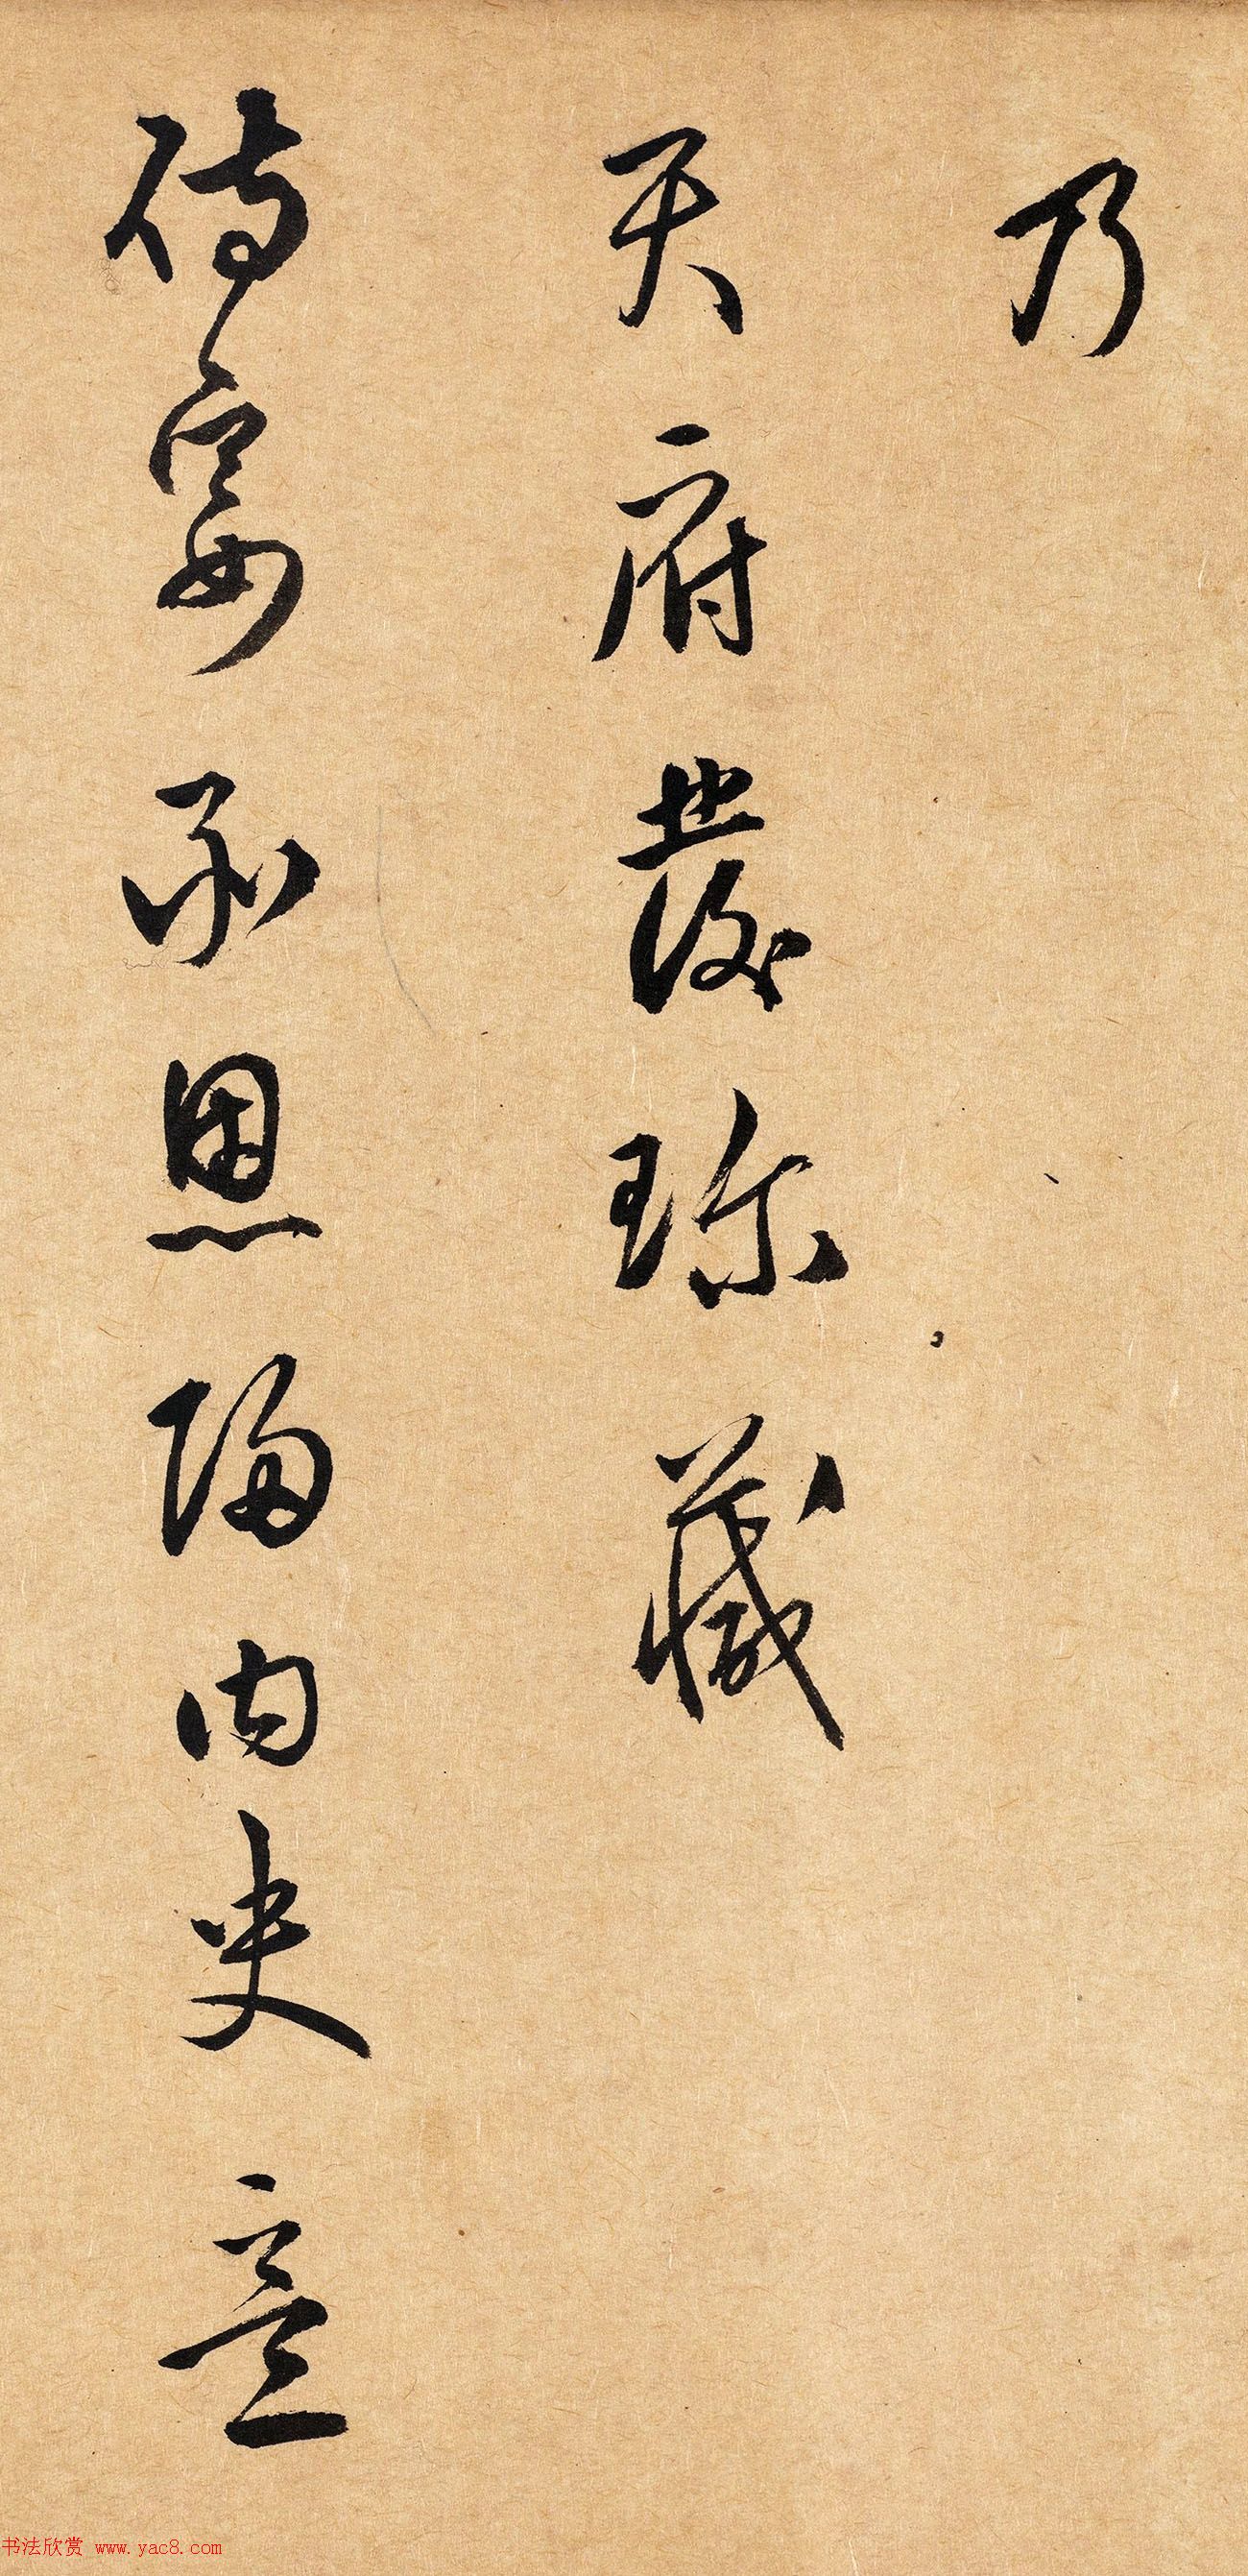 乃
天府發珍藏
侍宴承恩歸内史
书法欣赏 www.yac8.com